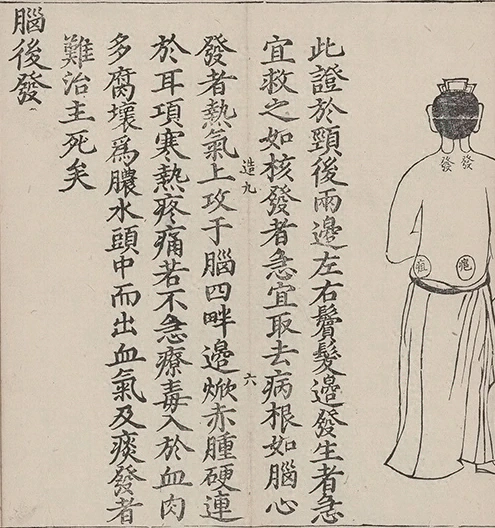 發 發
疽 疽
此證於頸後兩邊左右鬢髮邊發生者急
宜救之如核發者急宜取去病根如腦心
造九
六
發者熱氣上攻于腦四畔邊焮赤腫硬連
於耳項寒熱疼痛若不急療毒入於血肉
多腐壞爲膿水頭中而出血氣及痰發者
難治主死矣
腦後發